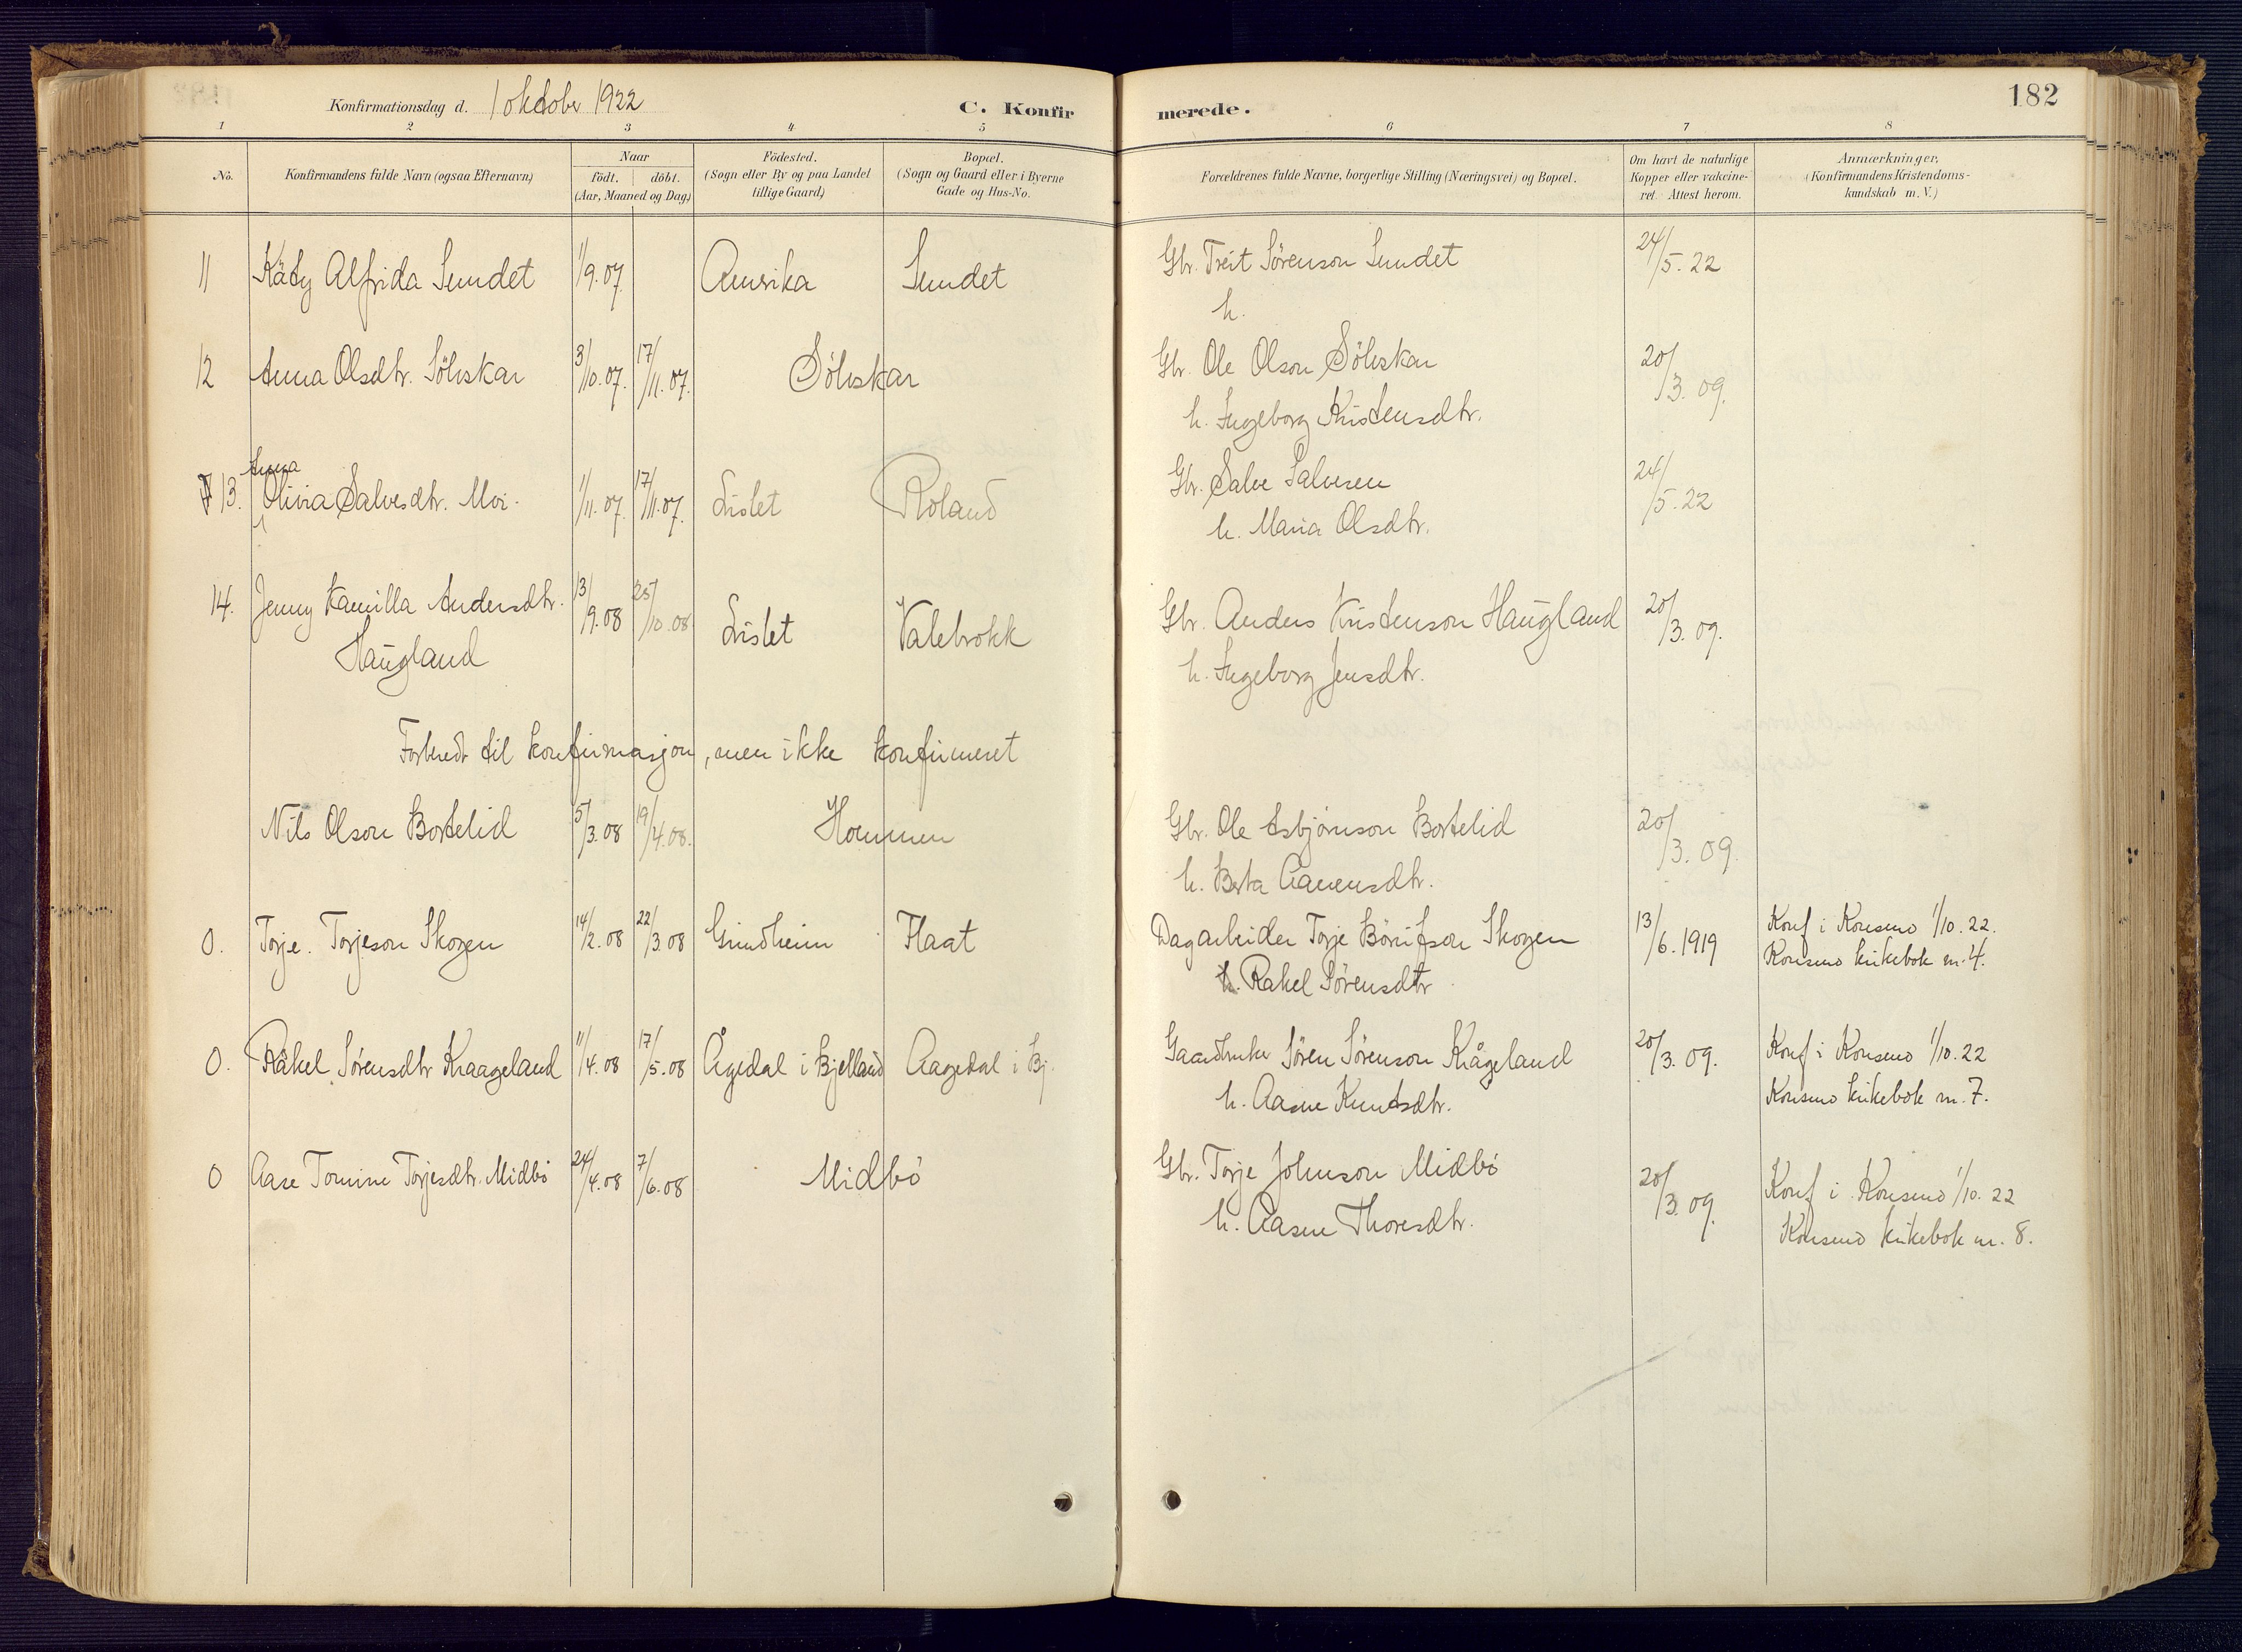 Konfirmationsdag d. 1 oktober 1922
C. Konfirmerede.
182
1 2 3 4 5 6 7 8
No.
Konfirmandens fulde Navn (ogsaa Efternavn)
Naar
födt. döbt.
(Aar, Maaned og Dag)
Födested.
(Sogn eller By og paa Landet
tillige Gaard)
Bopæl.
(Sogn og Gaard eller i Byerne
Gade og Hus-No.
Forældrenes fulde Navne, borgerlige Stilling (Næringsvei) og Bopæl.
Om havt de naturlige
Kopper eller vakcine-
ret. Attest herom.
Anmærkninger,
(Konfirmandens Kristendoms-
kundskab m. V.)
11 Käty Alfrida Sundet 1/9.07 Amerika Sundet Gbr. Treit Sørenson Sundet 24/5.22
h.
12 Anna Olsdtr. Sölvskar 3/10.07. 17/11.07. Sölvskar Gbr. Ole Olson Sölvskar 20/3.09.
h. Ingeborg Kristensdtr.
Anna
13. Olivia Salvesdtr. Moi. 1/11.07. 17/11.07. Lislet Roland Gbr. Salve Salvesen 24/5.22
h. Maria Olsdtr.
14. Jenny Kamilla Andersdtr. 13/9.08 25/10.08 Lislet Valebrokk Gbr. Anders Kristenson Haugland 20/3.09.
Haugland h. Ingeborg Jensdtr.
Forberedt til konfirmasjon, men ikke konfirmeret
Nils Olson Bortelid 5/3.08 19/4.08. Hommen Gbr. Ole Asbjørnson Bortelid 20/3.09.
h. Berta Aanensdtr.
O. Torje. Torjeson Skogen 14/2.08 22/3.08 Grindheim Flaat Dagarbeider Torje Bönifson Skogen 13/6.1919 Konf i Konsmo 1/10.22.
h. Rakel Sørensdtr Konsmo kirkebok nr. 4.
O. Råkel Sørensdtr Kraageland 11/4.08 17/5.08 Ågedal i Bjelland Aagedal i Bj. Gaardbruker Søren Sørenson Krågeland 20/3.09. Konf i Konsmo 1/10.22
h. Aasne Knutsdtr. Konsmo kirkebok nr. 7.
O Aase Tomine Torjesdtr. Midbö 24/4.08 7/6.08 Midbö Gbr. Torje Johnson Midbö 20/3.09. Konf i Konsmo 1/10.22
h. Aasne Thoresdtr. Konsmo kirkebok nr. 8.